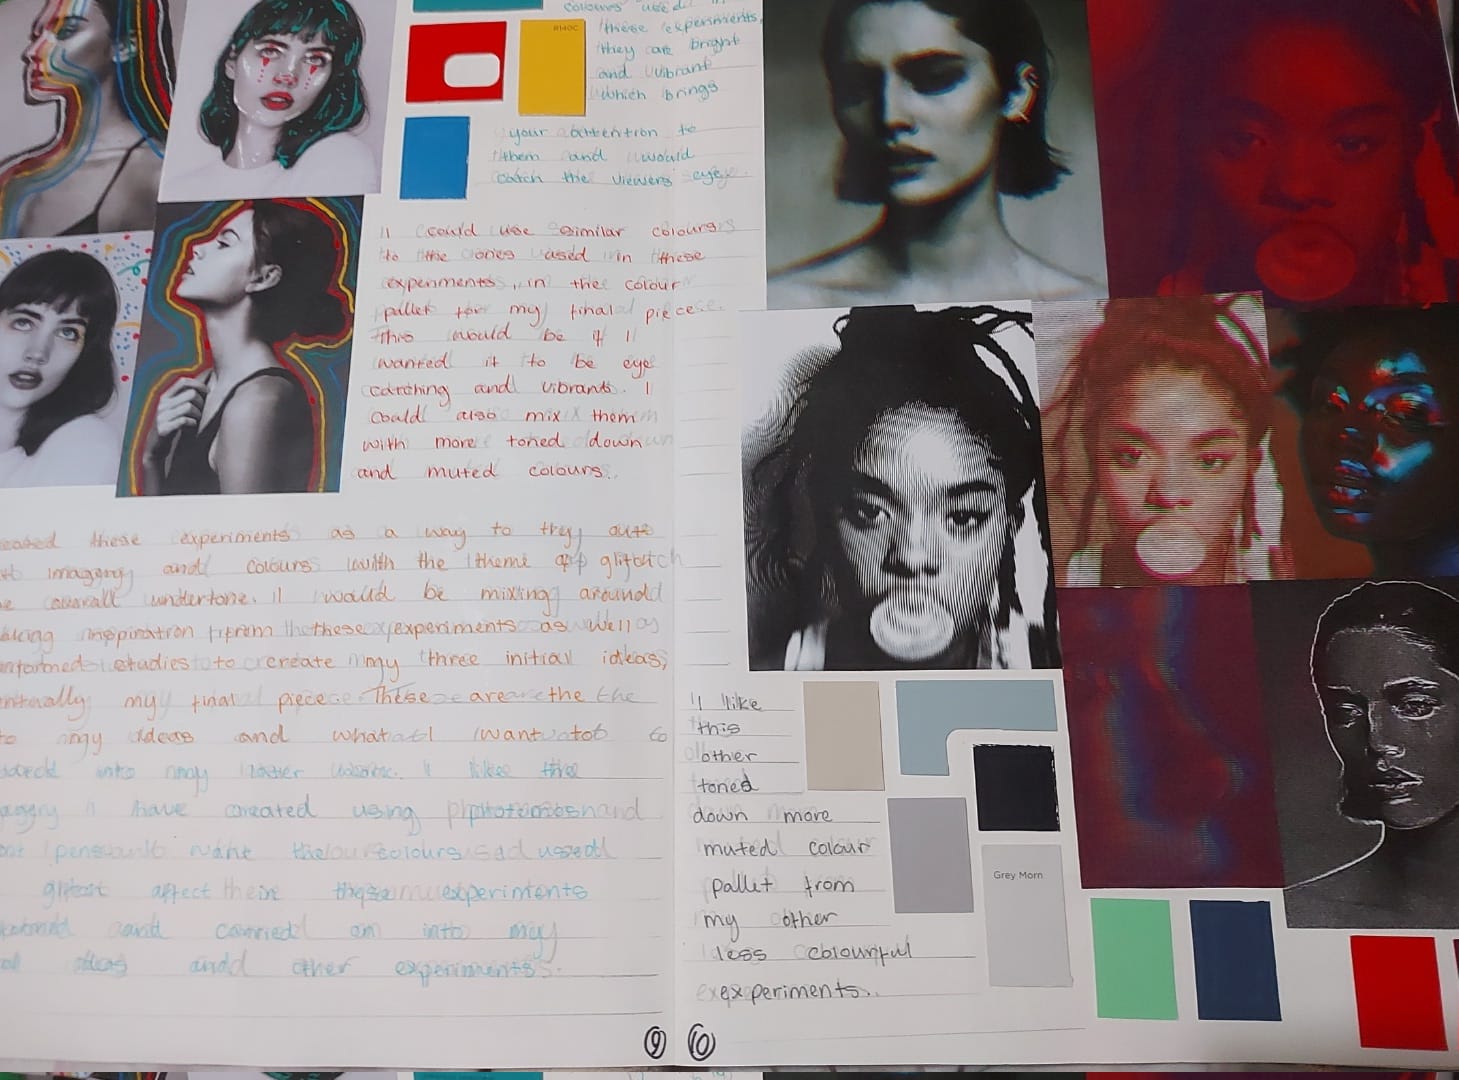 colours used in
these experiments,
they are bright
and vibrant
which brings
your attention to
them and would
catch the viewers eye.
R140C
I could use similar colours
to the ones used in these
experiments, in the colour
pallet for my final piece.
This would be if I
wanted it to be eye
catching and vibrant. I
could also mix them
with more toned down
and muted colours.
these experiments as a way to try out
imagery and colours with the theme of glitch
overall undertone. I would be mixing around
inspiration from these experiments as well as
studies to create my three initial ideas,
my final piece. These are the
to my ideas and what I want to
into my I like the
I have created using
the colours used
affect these experiments
and carried on into my
ideas and other experiments.
9
I like
this
other
toned
down more
muted colour
pallet from
my other
less colourful
experiments.
Grey Morn
10